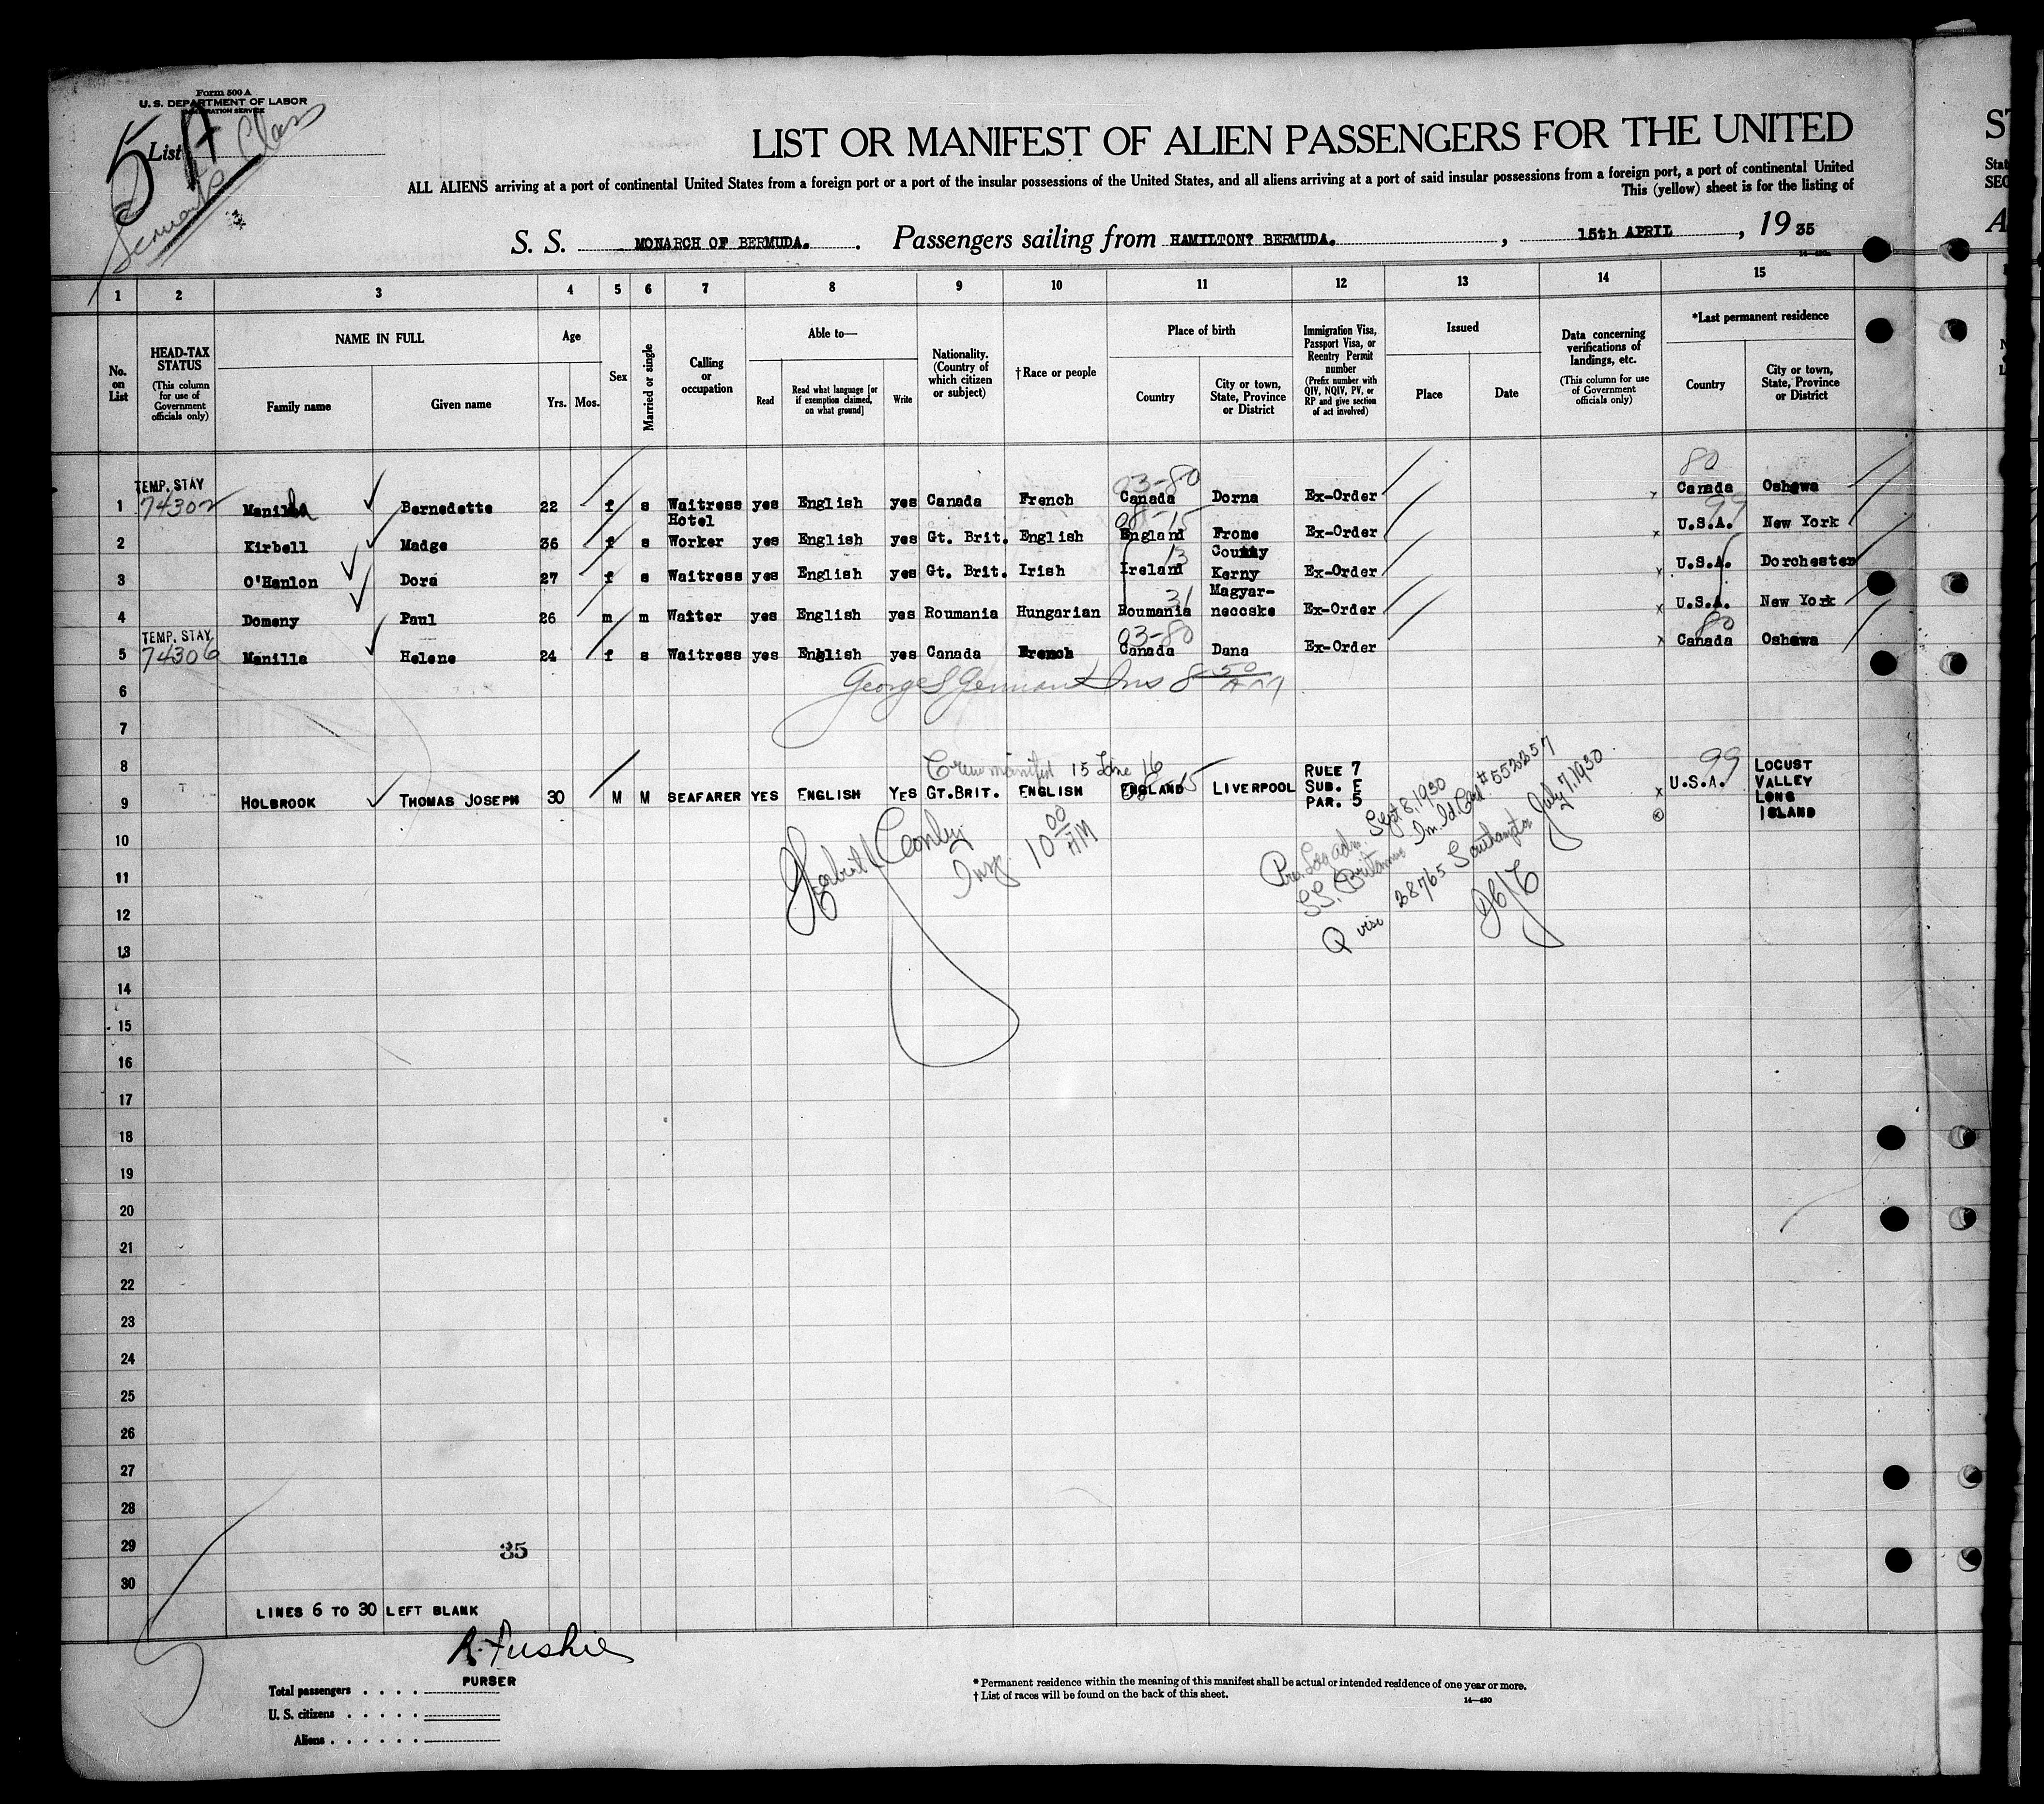 Form 500 A
U. S. DEPARTMENT OF LABOR
5 A
List
Class
LIST OR MANIFEST OF ALIEN PASSENGERS FOR THE UNITED
ALL ALIENS arriving at a port of continental United States from a foreign port or a port of the insular possessions of the United States, and all aliens arriving at a port of said insular possessions from a foreign port, a port of continental United
This (yellow) sheet is for the listing of
S. S. MONARCH OF BERMUDA. Passengers sailing from HAMILTON? BERMUDA. , 15th APRIL , 19 35
1 2 3 4 5 6 7 8 9 10 11 12 13 14 15
No. on List
HEAD-TAX STATUS (This column for use of Government officials only)
NAME IN FULL Family name Given name
Age Yrs. Mos.
Sex
Married or single
Calling or occupation
Able to— Read Read what language [or if exemption claimed, on what ground] Write
Nationality. (Country of which citizen or subject)
†Race or people
Place of birth Country City or town, State, Province or District
Immigration Visa, Passport Visa, or Reentry Permit number (Prefix number with QIV, NQIV, PV, or RP and give section of act involved)
Issued Place Date
Data concerning verifications of landings, etc. (This column for use of Government officials only)
*Last permanent residence Country City or town, State, Province or District
TEMP. STAY 03-80 80
1 74302 Manilla Bernedette 22 f s Waitress yes English yes Canada French Canada Dorna Ex-Order x Canada Oshawa
08-15 99
2 Kirbell Madge 36 f s Hotel Worker yes English yes Gt. Brit. English England Frome Ex-Order x U.S.A. New York
13
3 O'Hanlon Dora 27 f s Waitress yes English yes Gt. Brit. Irish Ireland County Kerny Ex-Order x U.S.A. Dorchester
31
4 Domeny Paul 26 m m Waiter yes English yes Roumania Hungarian Roumania Magyar-necoske Ex-Order x U.S.A. New York
TEMP. STAY 03-80 80
5 74306 Manilla Helene 24 f s Waitress yes English yes Canada French Canada Dana Ex-Order x Canada Oshawa
6 George S German Ins 8 50 AM
7
8 Crew manifest 15 line 16 99
9 HOLBROOK THOMAS JOSEPH 30 M M SEAFARER YES ENGLISH YES GT.BRIT. ENGLISH ENGLAND 08-15 LIVERPOOL RULE 7 SUB. E PAR. 5 x U.S.A. LOCUST VALLEY LONG ISLAND
10 Herbert Conley Insp. 10 00 AM
Sept 8, 1930
SS. Britannic Im. Id. Card # 552257
Q visa 28765 Southampton July 7, 1930
11
12
13
14
15
16
17
18
19
20
21
22
23
24
25
26
27
28
29 35
30
LINES 6 TO 30 LEFT BLANK
R. Fushie
PURSER
Total passengers
U. S. citizens
Aliens
* Permanent residence within the meaning of this manifest shall be actual or intended residence of one year or more.
† List of races will be found on the back of this sheet.
14—430